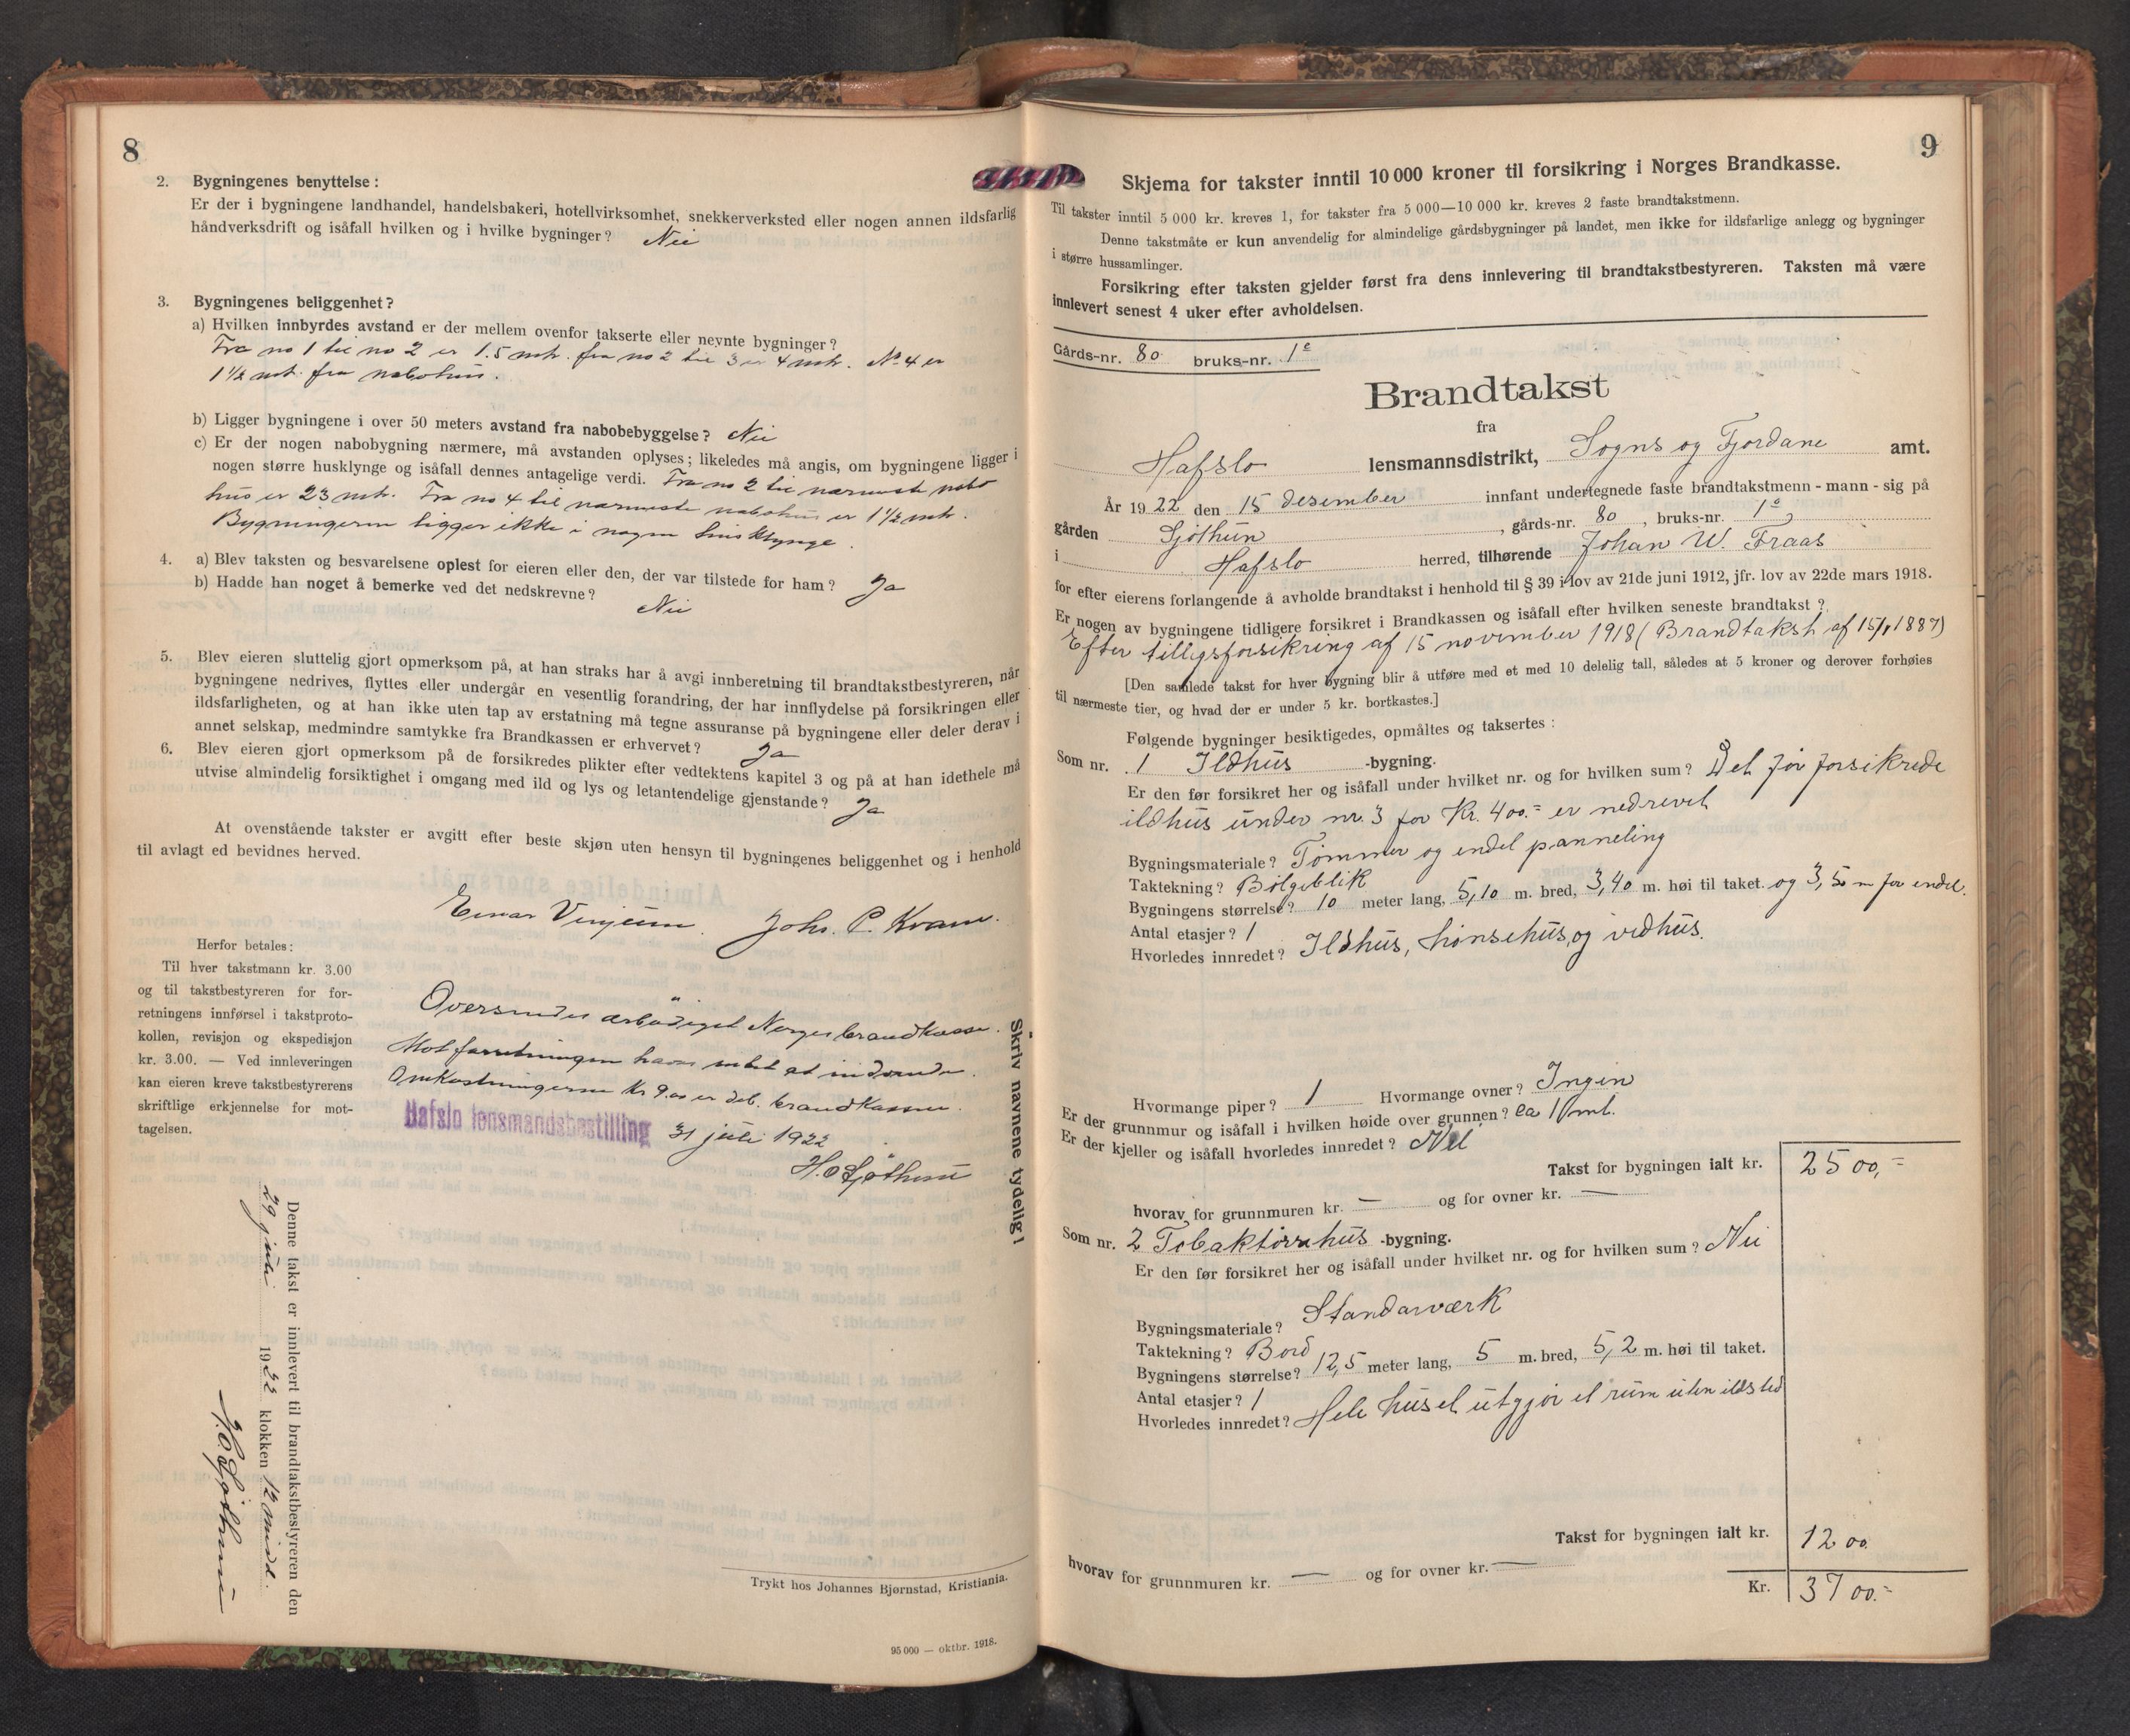 8
2. Bygningenes benyttelse:
Er der i bygningene landhandel, handelsbakeri, hotellvirksomhet, snekkerverksted eller nogen annen ildsfarlig
håndverksdrift og isåfall hvilken og i hvilke bygninger? Nei
3. Bygningenes beliggenhet?
a) Hvilken innbyrdes avstand er der mellem ovenfor takserte eller nevnte bygninger?
Fra no 1 til no 2 er 1.5 mtr. fra no 2 til 3 er 4 mtr. No 4 er
1 1/2 mtr. fra nabohus.
b) Ligger bygningene i over 50 meters avstand fra nabobebyggelse? Nei
c) Er der nogen nabobygning nærmere, må avstanden oplyses; likeledes må angis, om bygningene ligger i
nogen større husklynge og isåfall dennes antagelige verdi. Fra no 2 til nærmeste nabo
hus er 23 mtr. Fra no 4 til nærmeste nabohus er 1 1/2 mtr.
Bygningerne ligger ikke i nogen husklynge.
4. a) Blev taksten og besvarelsene oplest for eieren eller den, der var tilstede for ham? Ja
b) Hadde han noget å bemerke ved det nedskrevne?
Nei
5. Blev eieren sluttelig gjort opmerksom på, at han straks har å avgi innberetning til brandtakstbestyreren, når
bygningene nedrives, flyttes eller undergår en vesentlig forandring, der har innflydelse på forsikringen eller
ildsfarligheten, og at han ikke uten tap av erstatning må tegne assuranse på bygningene eller deler derav i
annet selskap, medmindre samtykke fra Brandkassen er erhvervet? Ja
6. Blev eieren gjort opmerksom på de forsikredes plikter efter vedtektens kapitel 3 og på at han idethele må
utvise almindelig forsiktighet i omgang med ild og lys og letantendelige gjenstande? Ja
At ovenstående takster er avgitt efter beste skjøn uten hensyn til bygningenes beliggenhet og i henhold
til avlagt ed bevidnes herved.
Einar Vinjum. Johs. P. Kvam.
Herfor betales:
Til hver takstmann kr. 3.00
og til takstbestyreren for for-
retningens innførsel i takstproto-
kollen, revisjon og ekspedisjon
kr. 3.00. — Ved innleveringen
kan eieren kreve takstbestyrerens
skriftlige erkjennelse for mot-
tagelsen.
Oversendes ærbødigst Norges brandkasse.
Mot forretningen haves intet at indvende.
Omkostningerne kr 9.00 er deb. brandkassen.
Hafslo lensmandsbestilling 31 juli 1922
H. O. Sjøthun
Skriv navnene tydelig!
Denne takst er innlevert til brandtakstbestyreren den
29 juli 1922 klokken 12 midd.
H. O. Sjøthun
Trykt hos Johannes Bjørnstad, Kristiania.
95 000 — oktbr. 1918.
9
Skjema for takster inntil 10 000 kroner til forsikring i Norges Brandkasse.
Til takster inntil 5 000 kr. kreves 1, for takster fra 5 000—10 000 kr. kreves 2 faste brandtakstmenn.
Denne takstmåte er kun anvendelig for almindelige gårdsbygninger på landet, men ikke for ildsfarlige anlegg og bygninger
i større hussamlinger.
Forsikring efter taksten gjelder først fra dens innlevering til brandtakstbestyreren. Taksten må være
innlevert senest 4 uker efter avholdelsen.
Gårds-nr. 80 bruks-nr. 1e
Brandtakst
fra
Hafslo lensmannsdistrikt, Sogns og Fjordane amt.
År 1922 den 15 desember innfant undertegnede faste brandtakstmenn - mann - sig på
gården Sjøthun, gårds-nr. 80, bruks-nr. 1e
i Hafslo herred, tilhørende Johan W. Fraas
for efter eierens forlangende å avholde brandtakst i henhold til § 39 i lov av 21de juni 1912, jfr. lov av 22de mars 1918.
Er nogen av bygningene tidligere forsikret i Brandkassen og isåfall efter hvilken seneste brandtakst?
Efter tilligsforsikring af 15 november 1918 (Brandtakst af 15/1 1887)
[Den samlede takst for hver bygning blir å utføre med et med 10 delelig tall, således at 5 kroner og derover forhøies
til nærmeste tier, og hvad der er under 5 kr. bortkastes.]
Følgende bygninger besiktigedes, opmåltes og taksertes:
Som nr. 1 Ildhus -bygning.
Er den før forsikret her og isåfall under hvilket nr. og for hvilken sum? Det før forsikrede
ildhus under nr. 3 for Kr. 400.= er nedrevet
Bygningsmateriale? Tømmer og endel panneling
Taktekning? Bølgeblik
Bygningens størrelse? 10 meter lang, 5,10 m. bred, 3,40 m. høi til taket. og 3,50 m for endel.
Antal etasjer? 1
Hvorledes innredet? Ildhus, hønsehus, og vedhus.
Hvormange piper? 1 Hvormange ovner? Ingen
Er der grunnmur og isåfall i hvilken høide over grunnen? ca 1 mt.
Er der kjeller og isåfall hvorledes innredet? Nei
Takst for bygningen ialt kr. 2500,=
hvorav for grunnmuren kr. — og for ovner kr. —
Som nr. 2 Tobaktørrhus -bygning.
Er den før forsikret her og isåfall under hvilket nr. og for hvilken sum? Nei
Bygningsmateriale? Standarværk
Taktekning? Bord
Bygningens størrelse? 12,5 meter lang, 5 m. bred, 5,2 m. høi til taket.
Antal etasjer? 1
Hvorledes innredet? Hele huset utgjør et rum uten ildsted
Takst for bygningen ialt kr. 1200
hvorav for grunnmuren kr. — og for ovner kr. —
Kr. 3700.=